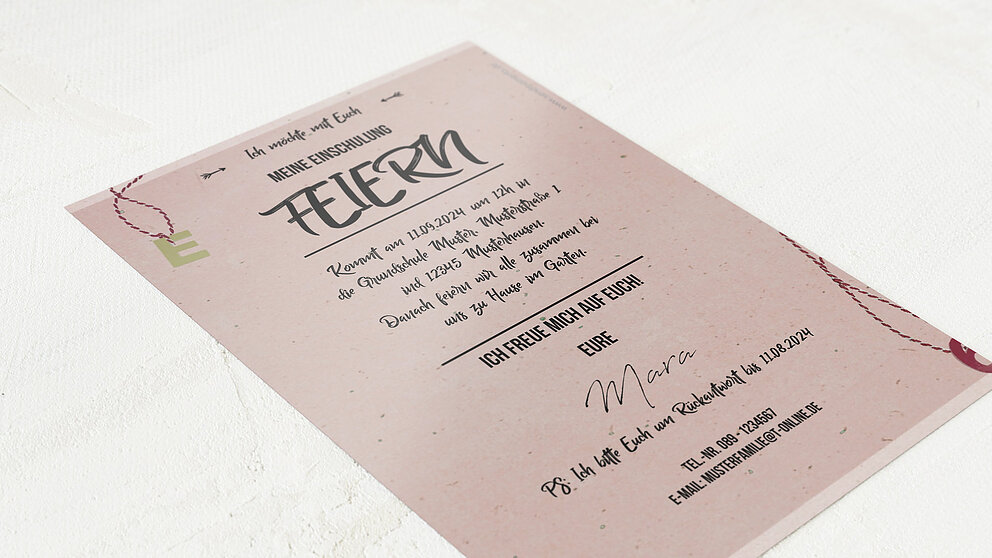 Ich möchte mit Euch
MEINE EINSCHULUNG
FEIERN
Kommt am 11.09.2024 um 12h in
die Grundschule Muster, Musterstraße 1
ind 12345 Musterhausen.
Danach feiern wir alle zusammen bei
uns zu Hause im Garten.
ICH FREUE MICH AUF EUCH!
EURE
Mara
PS: Ich bitte Euch um Rückantwort bis 11.08.2024
TEL.-NR. 089 - 1234567
E-MAIL: MUSTERFAMILIE@T-ONLINE.DE
E